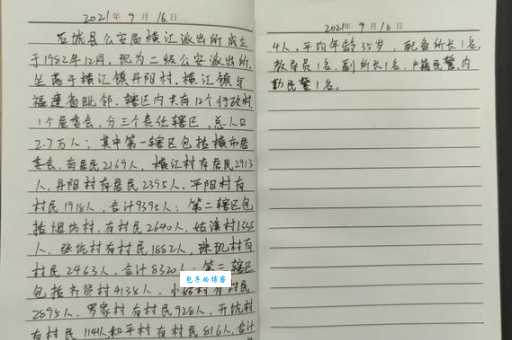 2021年 9月 16日
石城县公安局横江派出所成立
于1982年12月,现为二级公安派出所,
坐落于横江镇丹阳村,横江镇与
福建省毗邻,辖区内共有12个行政村,
1个居委会,分三个责任辖区,总人口
2.7万人;其中第一辖区包括横市居
委会,有居民2169人,横江村有居民2913
人,丹阳村有居民2395人,平阳村有
村民1918人,合计9395人;第二辖区包
村,有村民2640人,村1335
人,村有村民1882人,珠玑村有
村民2463人,合计8320人,第三辖区
包括齐贤村4138人,村有村民
2695人,罗家村有村民928人,开坑村
有村民1141人,和平村有村民816人,合计
电子的博客
2021年 9月 16日
4人,平均年龄35岁,配备所长1名,
教导员1名,副所长1名,户籍民警内
勤民警1名。